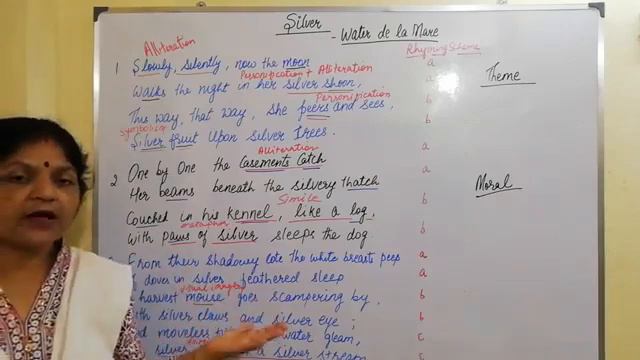 Silver
- Water de la Mare
Alliteration
Rhyming Scheme
1 Slowly, silently, now the moon a
Personification + Alliteration
Walks the night in her silver shoon, a
Theme
Personification
This way, that way, she peers and sees, b
Symbolism
Silver fruit upon silver trees. b
Alliteration
2 One by One the Casements Catch a
Her beams beneath the silvery thatch
Moral
Simile
Couched in his kennel, like a log, b
metaphor
With paws of silver sleeps the dog. b
From their shadowy cote the white breasts peep a
doves in silver feathered sleep a
visual imagery
harvest mouse goes scampering by, b
silver claws and silver eye; b
moveless water gleam, c
silver a silver stream c